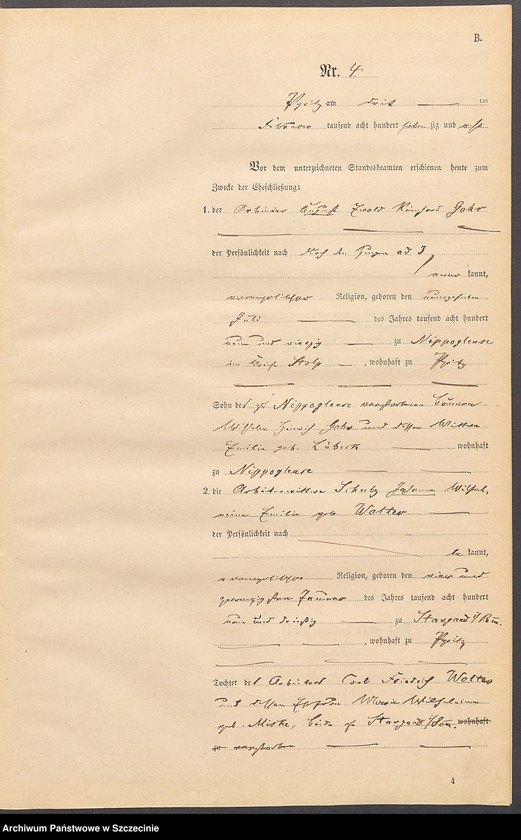 B.
Nr. 4.
Pyritz am drei ten
Februar tausend acht hundert sieben zig und acht
Vor dem unterzeichneten Standesbeamten erschienen heute zum
Zwecke der Eheschließung:
1. der Arbeiter August Ewald Reinhard Gohr
der Persönlichkeit nach durch den Zeugen ad. 3
kannt,
evangelischer Religion, geboren den neunzehnten
Juli des Jahres tausend acht hundert
neun und vierzig zu Nippoglense
im Kreise Stolp, wohnhaft zu Pyritz
Sohn des zu Nippoglense verstorbenen
Wilhelm Heinrich Gohr und dessen Wittwe
Emilie geb. Lübeck wohnhaft
zu Nippoglense
2. die Arbeiterwittwe Schulz Johanne Wilhel,
mine Emilie geb Wolter
der Persönlichkeit nach
be kannt,
evangelischer Religion, geboren den vier und
zwanzigsten Januar des Jahres tausend acht hundert
neun und dreißig zu Stargard i/Pom.
, wohnhaft zu Pyritz
Tochter des Arbeiters Carl Friedrich Wolter
und dessen Ehefrau Marie Wilhelmine
geb. Miske, beide zu Stargard i/Pom. wohnhaft
zu verstorben
4
Archiwum Państwowe w Szczecinie